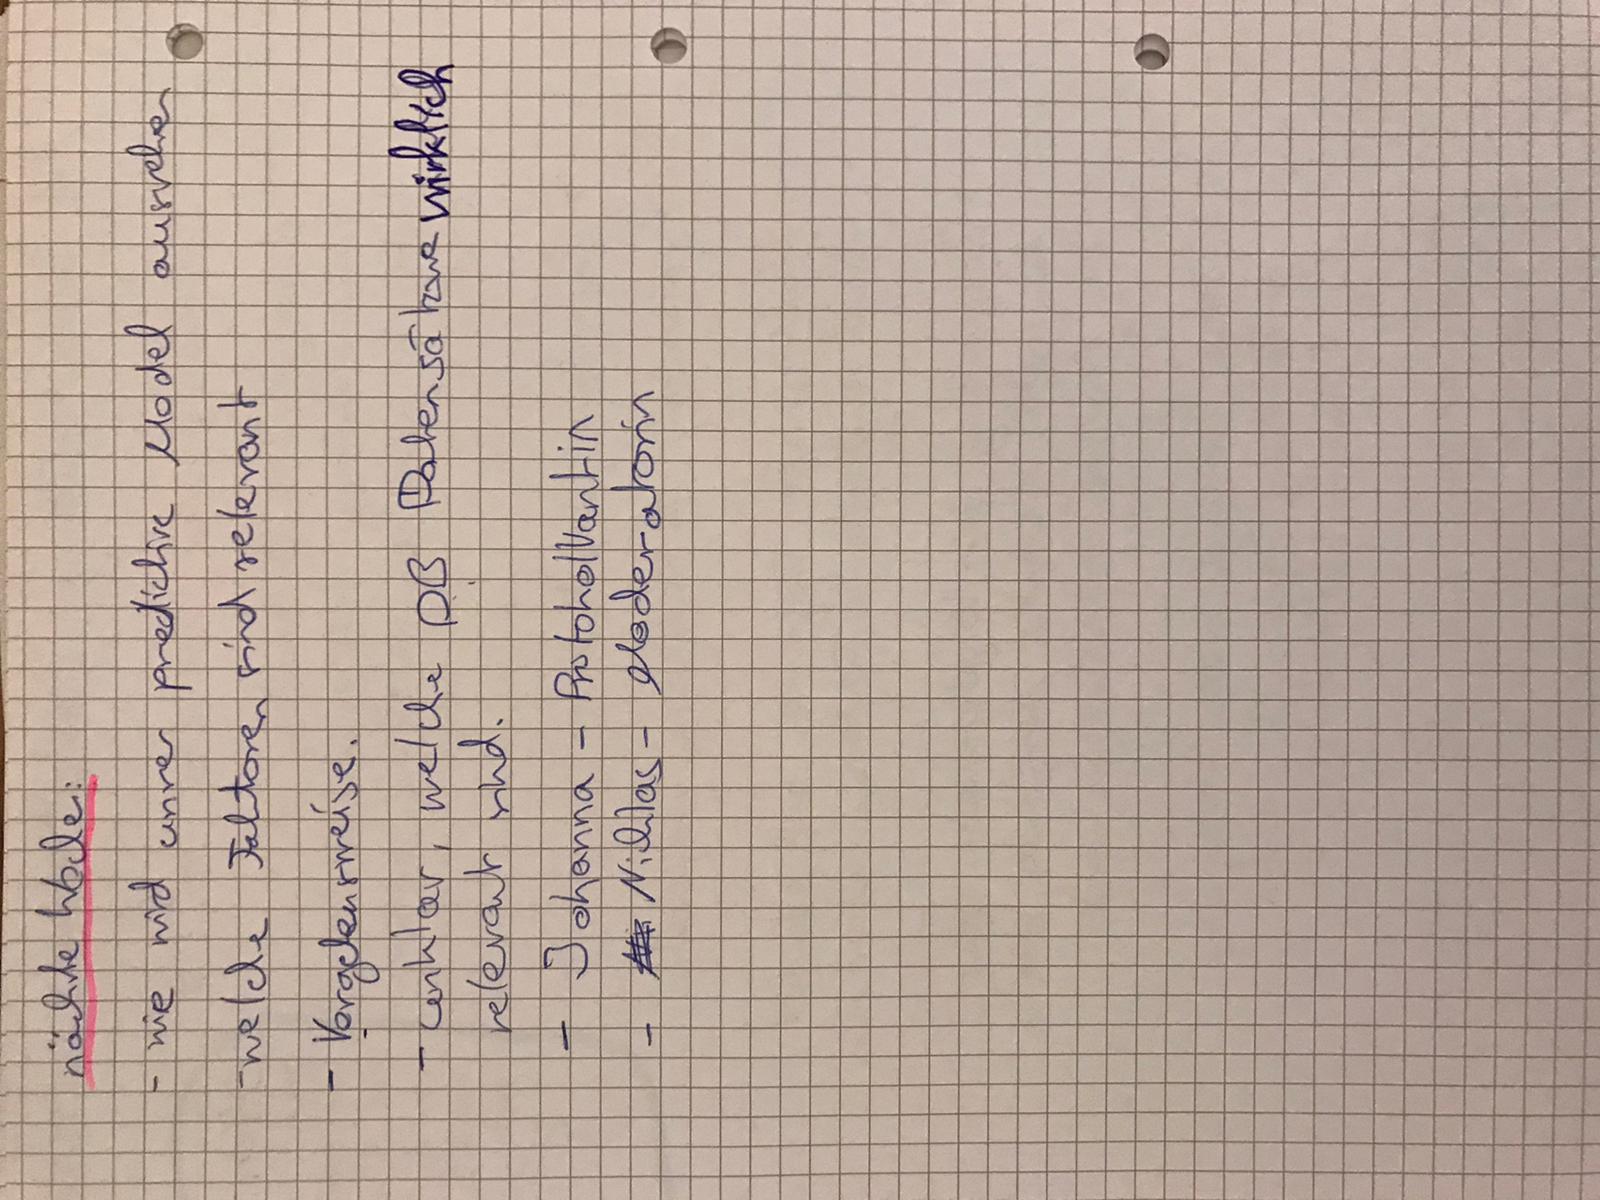 nächste Woche:
- wie wird unser predictive Model aussehen
- welche Faktoren sind relevant
- Vorgehensweise.
- unklar, welche DB Datensätze wirklich
relevant sind.
- Johanna - Protokollantin
- Niklas - Moderatorin